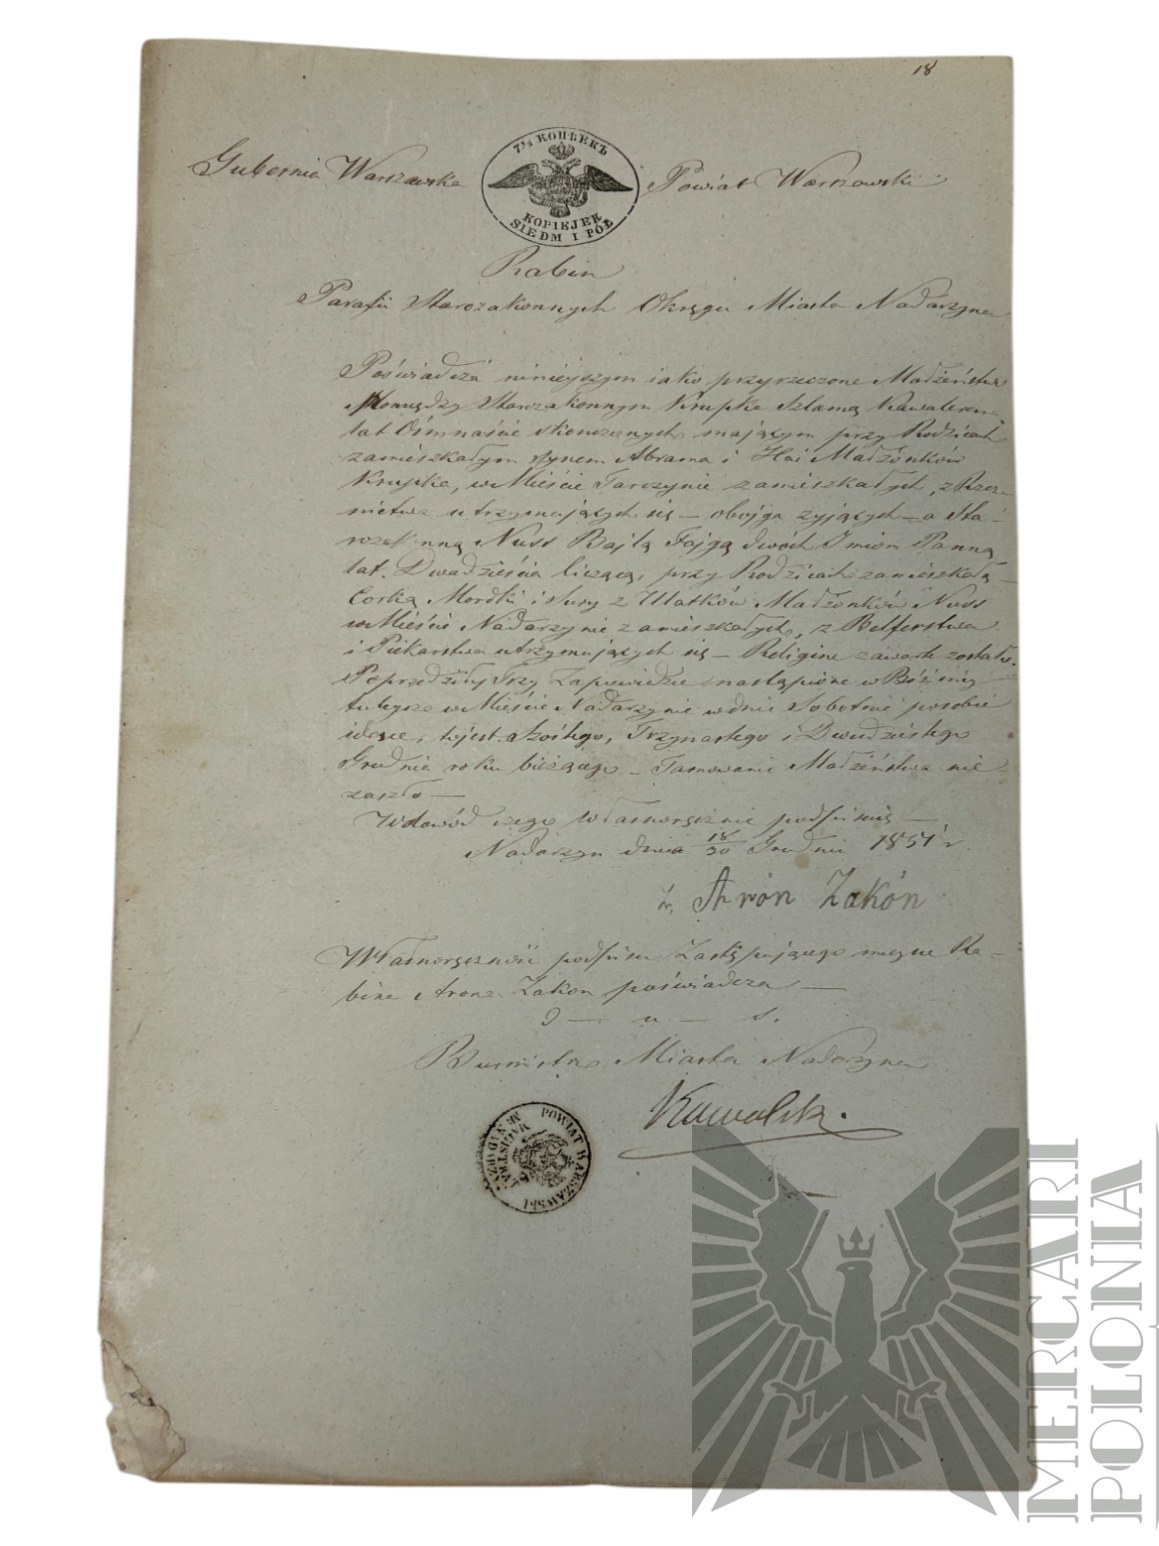 18
7½ КОПѢЕКЪ
KOPIEJEK
SIEDM I PÓŁ
Gubernia Warszawska
Powiat Warszawski
Rabin
Parafii Starozakonnych Okręgu Miasta Nadarzyna
Poświadcza niniejszym iako przyrzeczone Małżeństwo
Pomiędzy Starozakonnym Krupka Szlamą Kawalerem
lat Ośmnaście skończonych mającym przy Rodzicach
zamieszkałym synem Abrama i Hai Małżonków
Krupka, w Mieście Tarczynie zamieszkałych, z Rzez-
nictwa utrzymujących się – obojga żyjących – a Sta-
rozakonną Nuss Bajlą Fajgą dwóch Imion Panną
lat Dwadzieścia liczącą, przy Rodzicach zamieszkałą
Corką Mordki i Sury z Małżonków Nuss
w Mieście Nadarzynie zamieszkałych, z Belferstwa
i Piekarstwa utrzymujących się – Religijne zawarte zostało.
Poprzedziły Trzy Zapowiedzie nastąpione w Bóźnicy
tutejszej w Mieście Nadarzynie w dnie Sobotnie po sobie
idące, to jest Szóstego, Trzynastego i Dwudziestego
Grudnia roku bieżącego – Tamowanie Małżeństwa nie
zaszło –
W dowód czego własnoręcznie podpisuię –
Nadarzyn dnia 18/30 Grudnia 1851 r
Aron Zakón
Własnoręczność podpisu Zastępującego miejsce Ra-
bina Arona Zakon poświadcza –
Burmistrz Miasta Nadarzyna
Kowalsk.
POWIAT WARSZAWSKI
MAGISTRAT
M. NADARZYN
MERCARI
POLONIA